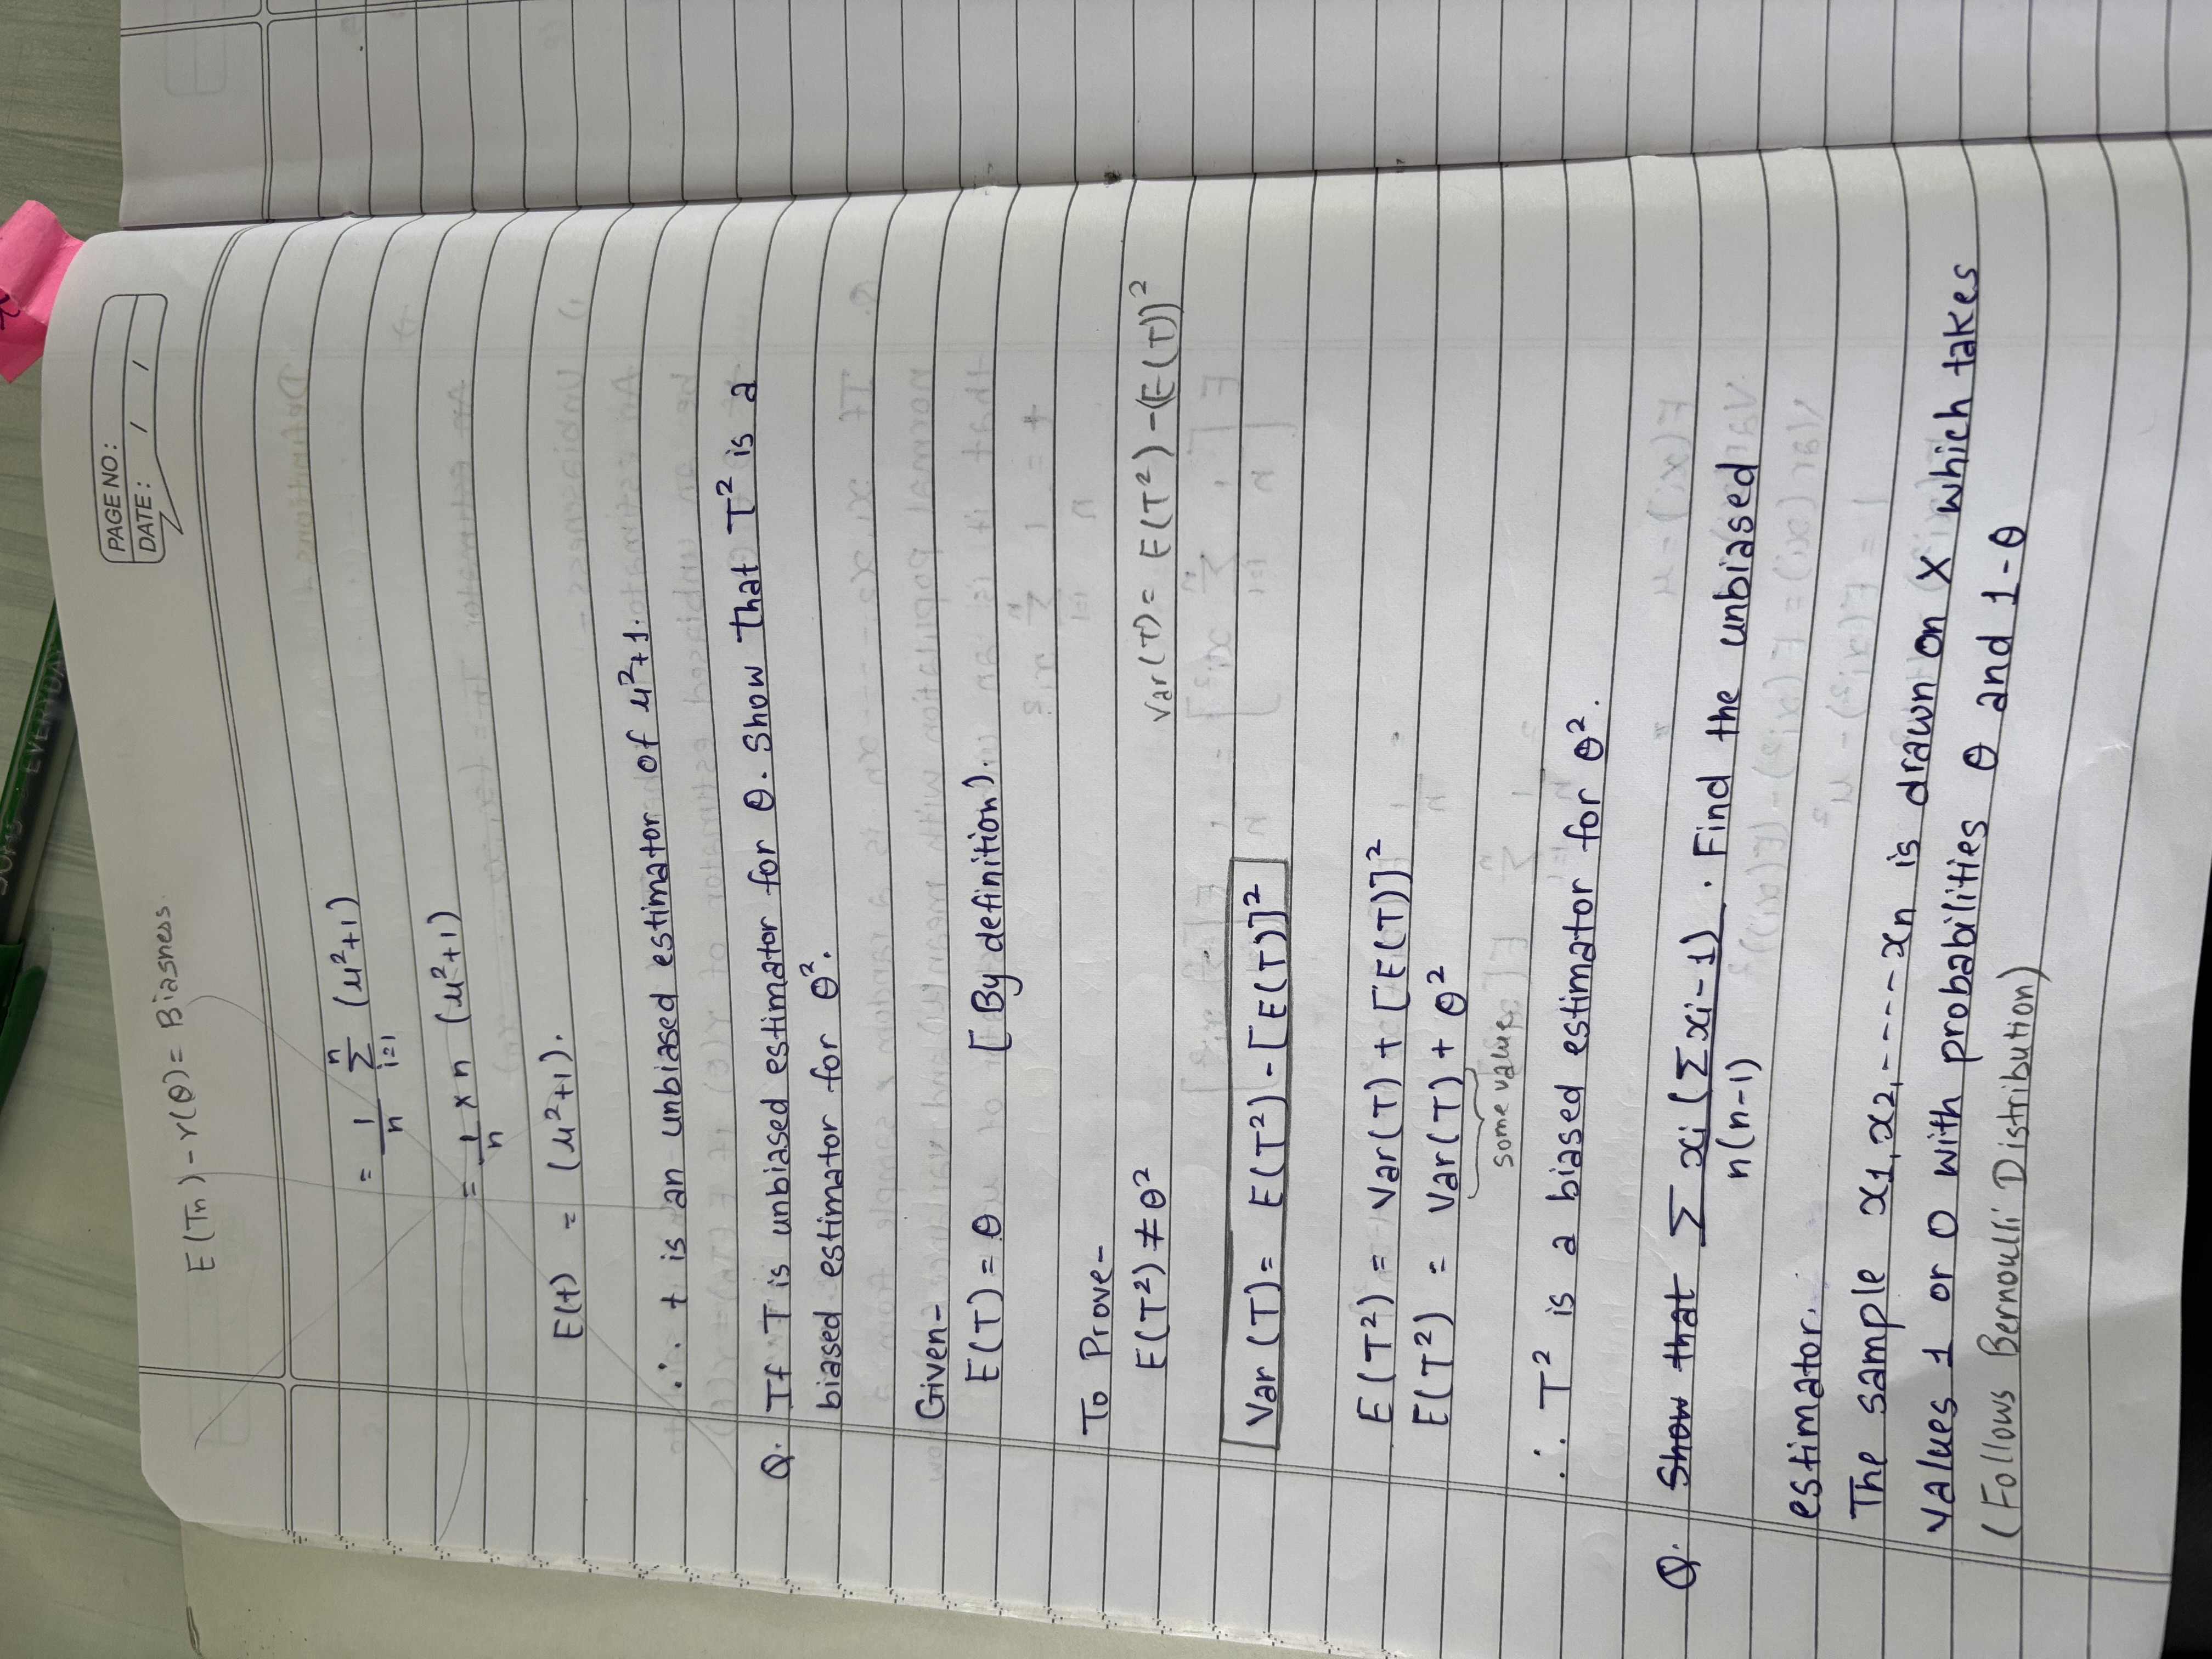 EVERYDAY
PAGE NO :
DATE : / /
E(Tn) - γ(θ) = Biasness.
= 1/n Σ_{i=1}^{n} (μ²+1)
= 1/n × n (μ²+1)
E(t) = (μ²+1).
∴ t is an unbiased estimator of μ²+1.
Q. If T is unbiased estimator for θ. Show that T² is a
biased estimator for θ².
Given-
E(T) = θ [ By definition).
To Prove-
E(T²) ≠ θ²
Var(T) = E(T²) - (E(T))²
Var (T) = E(T²) - [E(T)]²
E(T²) = Var(T) + [E(T)]²
E(T²) = Var(T) + θ²
some value
∴ T² is a biased estimator for θ².
Q. Show that Σ xi (Σxi - 1) / n(n-1) . Find the unbiased
estimator.
The sample x1, x2, ---- xn is drawn on X which takes
values 1 or 0 with probabilities θ and 1-θ
(Follows Bernoulli Distribution)